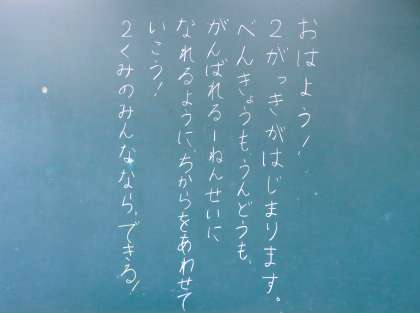 おはよう！
２がっきがはじまります。
べんきょうも、うんどうも、
がんばれる一ねんせいに
なれるように、ちからをあわせて
いこう！
２くみのみんななら、できる！